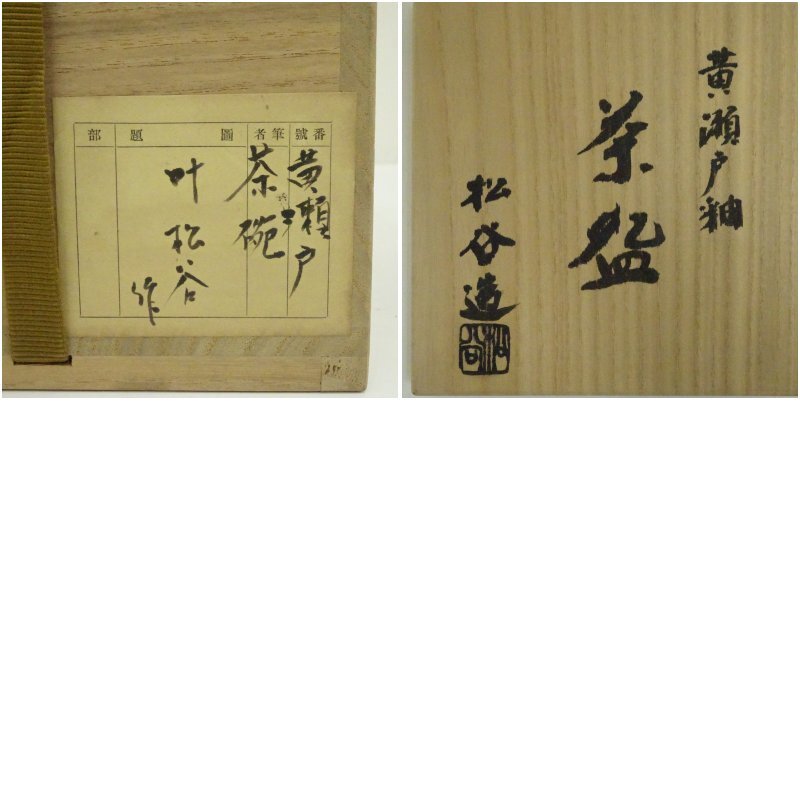 番號
筆者
圖題
部
黄瀬戸
茶碗
叶松谷
作
黄瀬戸釉
茶盌
松谷造